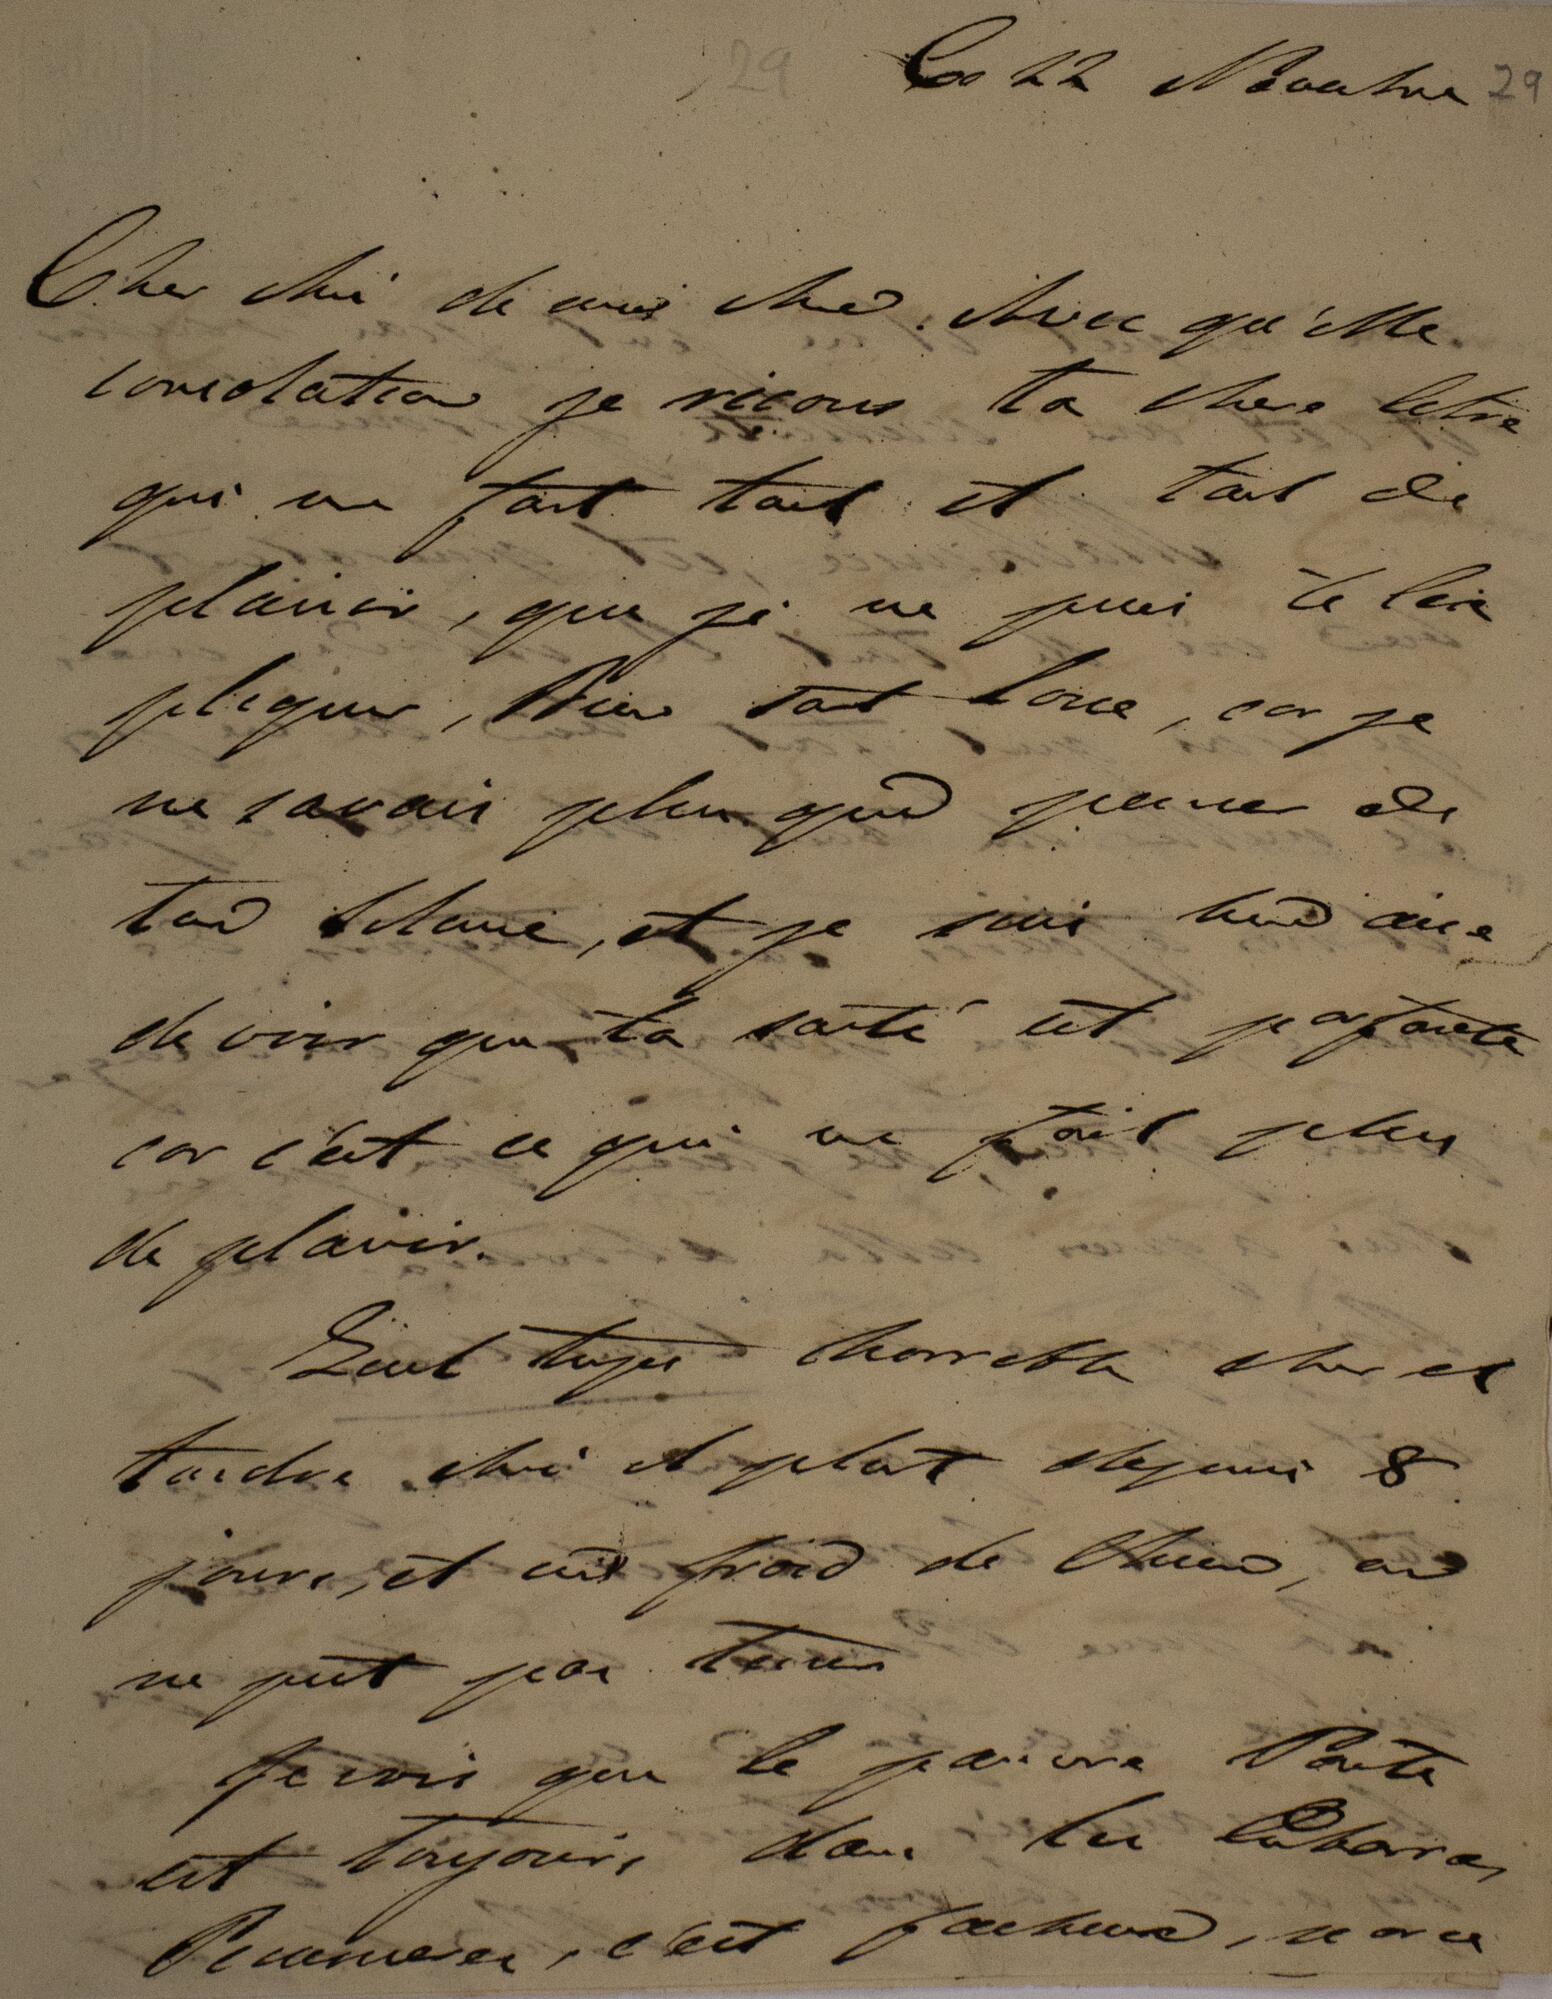 Ce 22 Novembre 29
29
Cher Ami de mon Ame. Avec qu'elle
consolation je reçous ta chere letre
qui me fait tant et tant de
plaisir, que je ne puis te lex
pliquer, Dieu soit loue, car je
ne savais plus que penser de
ton silance, et je suis bien aise
de voir que ta santé est parfaite
car c'est ce qui me fait plus
de plaisir.
Quel temps horrible cher et
tendre Ami il pleut depuis 8
jours, et un froid de chien, on
ne peut pas tenir
Je vois que le pauvre Porte
est toujours dans les Enbarras
c'est facheux, parce